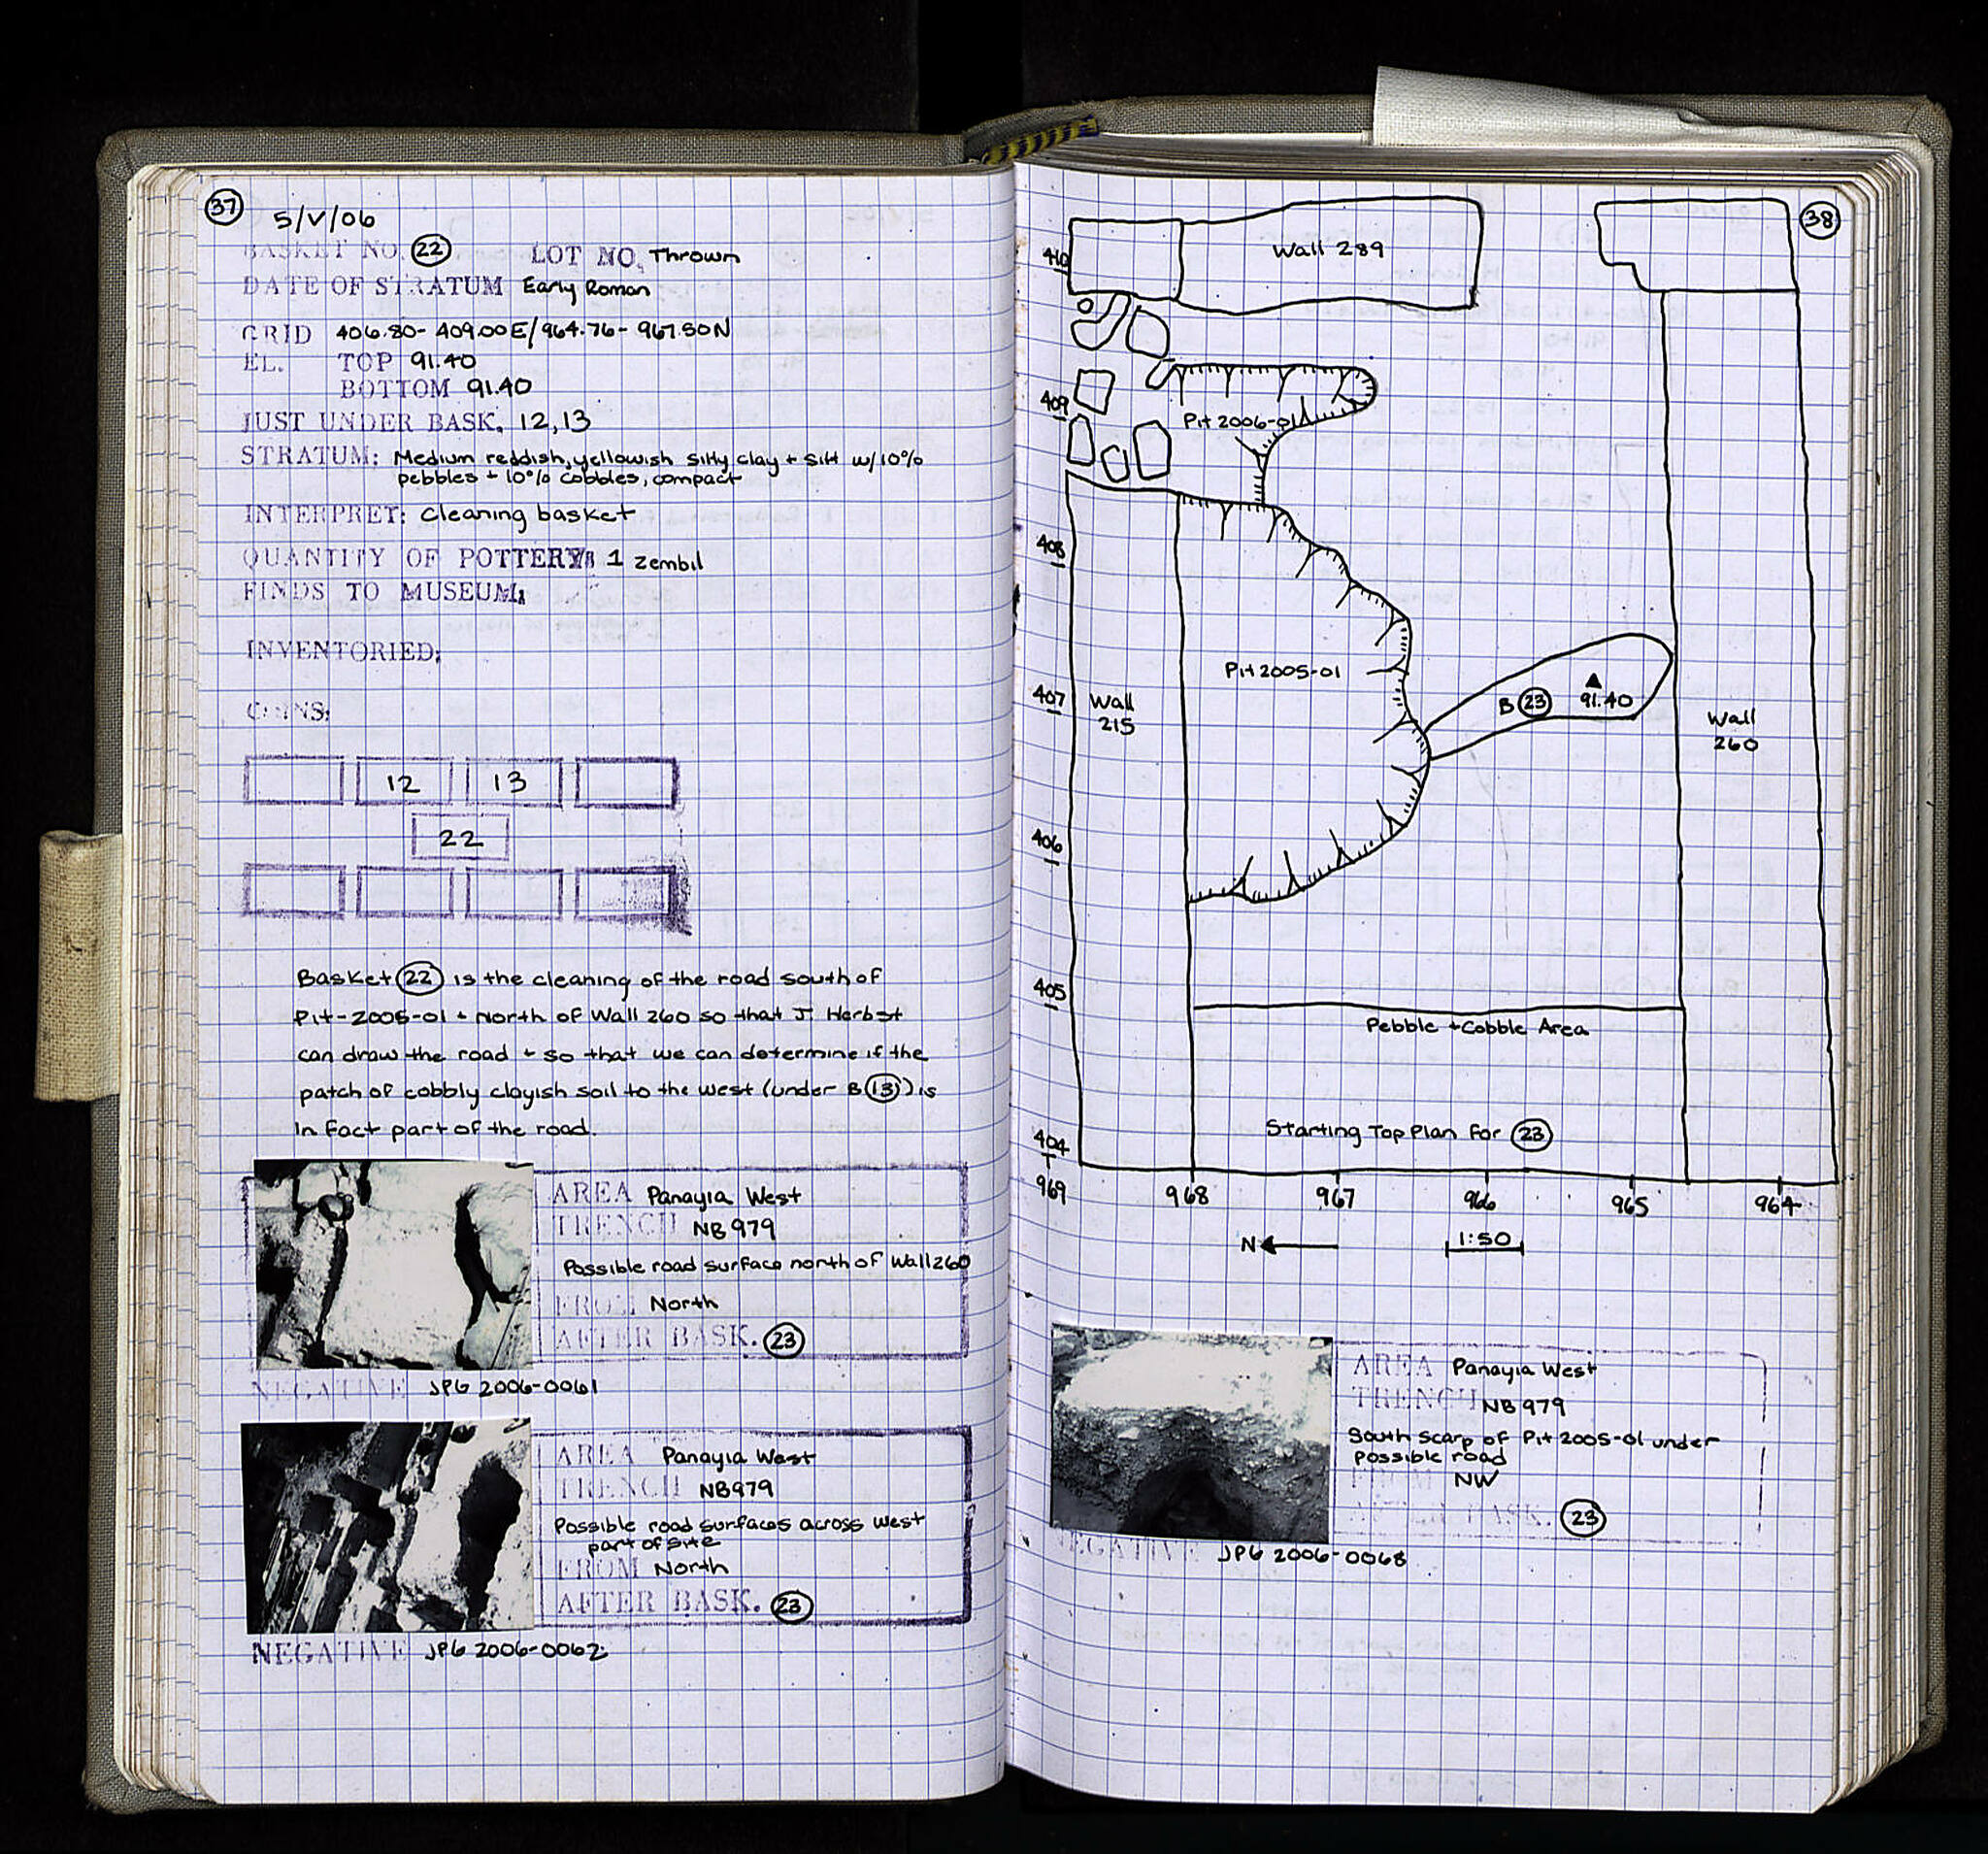 37
5/V/06
BASKET NO. 22 LOT NO. Thrown
DATE OF STRATUM Early Roman
GRID 406.80-409.00E/964.76-967.50N
EL. TOP 91.40
BOTTOM 91.40
JUST UNDER BASK. 12,13
STRATUM: Medium reddish, yellowish silty clay + silt w/10%
pebbles + 10% cobbles, compact
INTERPRET: Cleaning basket
QUANTITY OF POTTERY: 1 zembil
FINDS TO MUSEUM:
INVENTORIED:
COINS:
12 13
22
Basket 22 is the cleaning of the road south of
Pit-2005-01 + North of Wall 260 so that J Herbst
can draw the road + so that we can determine if the
patch of cobbly clayish soil to the west (under B 13) is
in fact part of the road.
AREA Panayia West
TRENCH NB979
Possible road surface north of Wall 260
FROM North
AFTER BASK. 23
NEGATIVE JPG 2006-0061
AREA Panayia West
TRENCH NB979
Possible road surfaces across west
part of site
FROM North
AFTER BASK. 23
NEGATIVE JPG 2006-0062
38
410
Wall 289
409
Pit 2006-01
408
Pit 2005-01
407
Wall
215
B 23
91.40
Wall
260
406
405
Pebble + Cobble Area
404
Starting Top Plan for 23
969 968 967 966 965 964
N 1:50
AREA Panayia West
TRENCH NB979
South scarp of Pit 2005-01 under
possible road
FROM NW
AFTER BASK. 23
NEGATIVE JPG 2006-0068